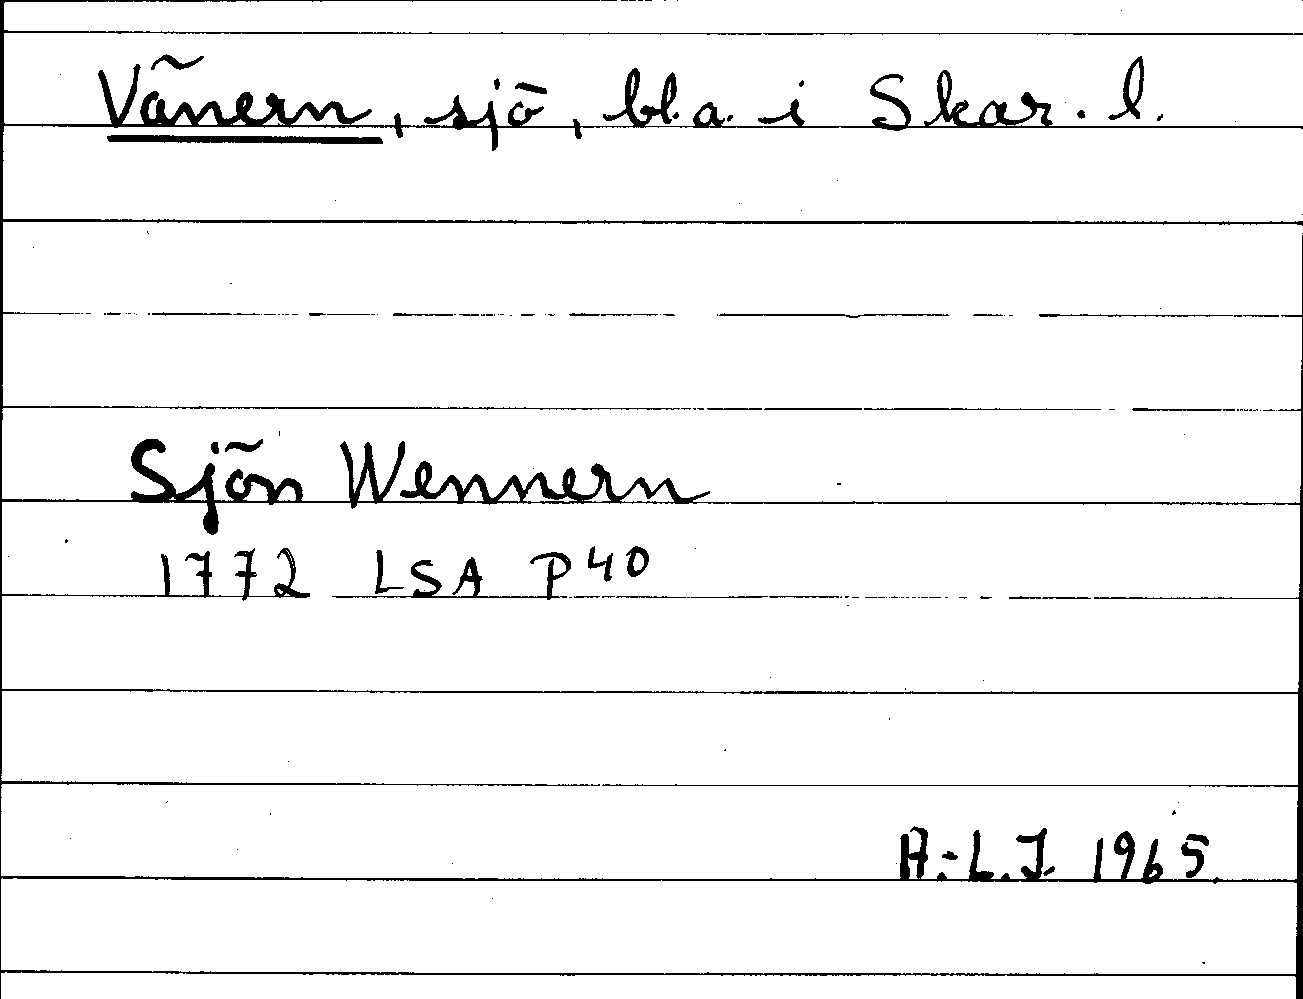 Vänern, sjö, bl.a. i Skar. l.
Sjön Wennern
1772 LSA P40
A.-L.J. 1965.